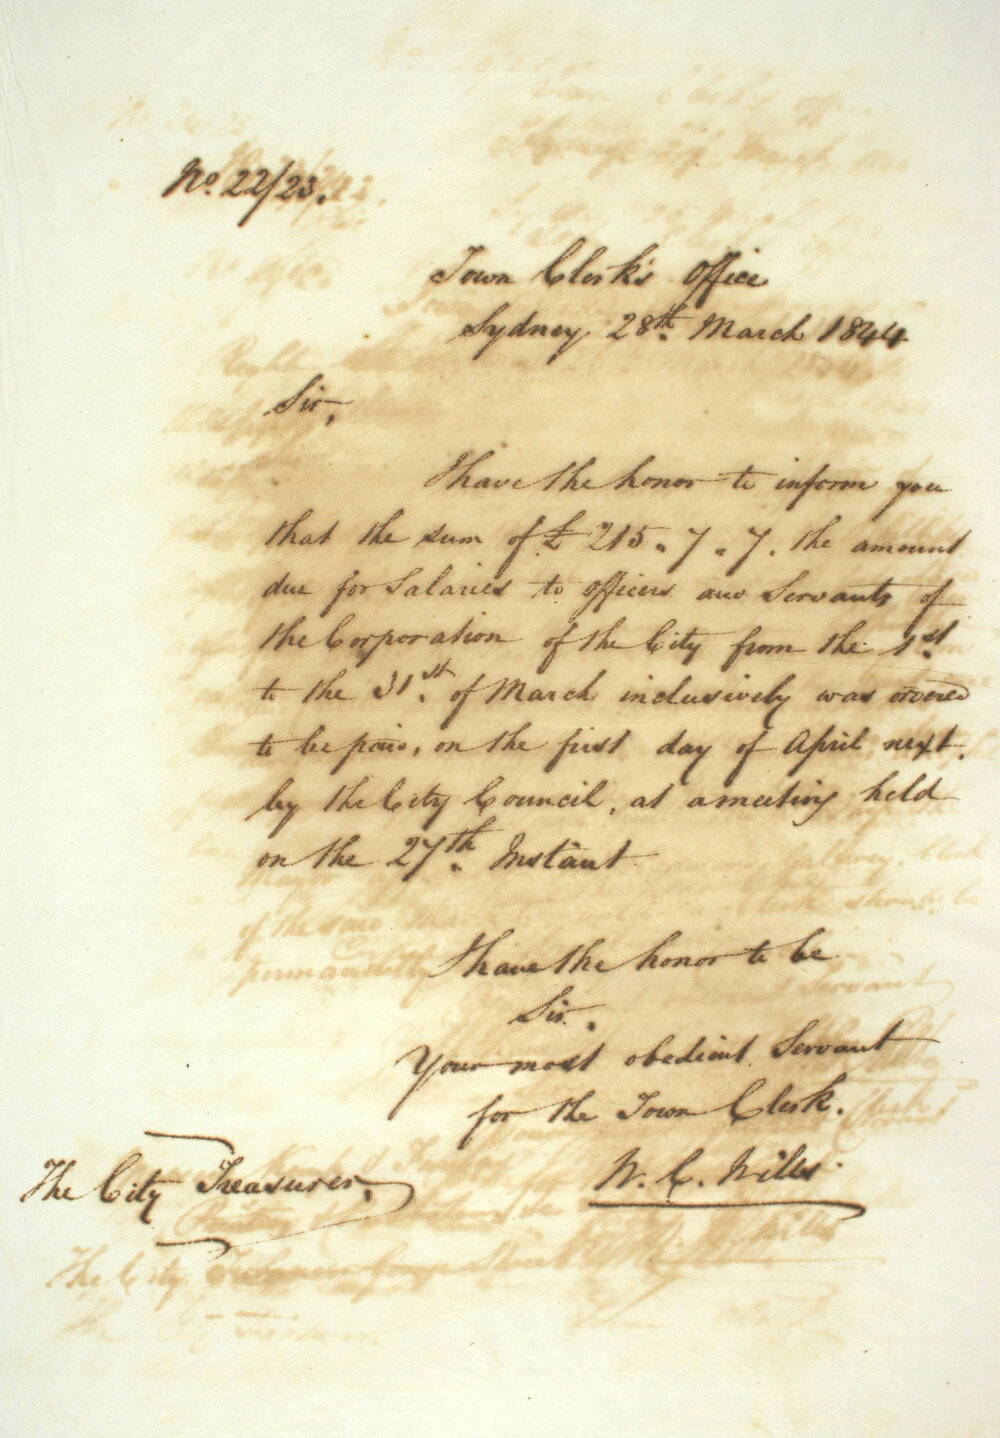 No. 22/23.
Town Clerk's Office
Sydney 28th. March 1844
Sir,
I have the honor to inform you
that the sum of £215.7.7. the amount
due for Salaries to Officers and Servants of
the Corporation of the City from the 1st.
to the 31st. of March inclusively was ordered
to be paid, on the first day of April next.
by the City Council, at a meeting held
on the 27th. Instant
I have the honor to be
Sir.
Your most obedient Servant
for the Town Clerk.
W. C. Wills.
The City Treasurer,